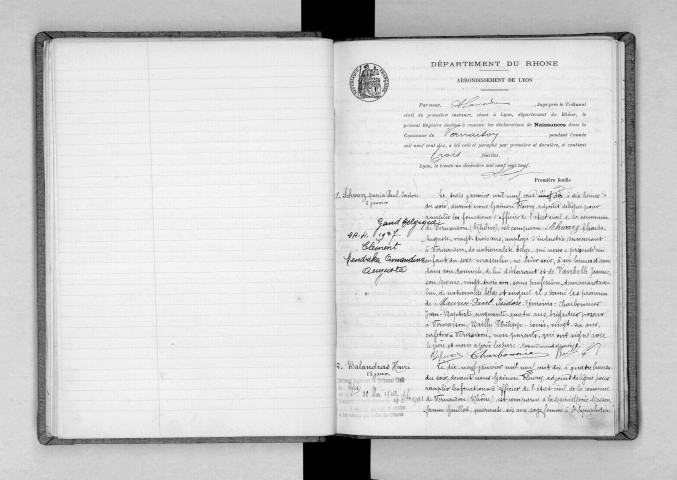 DÉPARTEMENT DU RHONE
ARRONDISSEMENT DE LYON
Par nous, Juge près le Tribunal
civil de première instance, séant à Lyon, département du Rhône, le
présent Registre destiné à recevoir les déclarations de Naissances dans la
Commune de Vernaison pendant l'année
mil neuf cent dix, a été coté et paraphé par première et dernière, et contient
trois feuilles.
Lyon, le trente-un décembre mil neuf cent neuf.
Première feuille
1. Schwarz Maurice Paul Isidore
3 janvier
Gand Belgique
1937
Clément
Amandine
Augusta
Le trois janvier mil neuf cent dix à dix heures
du soir, devant nous Gaïnon Fleury, adjoint délégué pour
remplir les fonctions d'officier de l'état civil de la commune
de Vernaison, (Rhône), est comparu Schwarz Charles
Auguste, vingt trois ans, employé d'industrie demeurant
à Vernaison, de nationalité belge, qui nous a présenté un
enfant du sexe masculin, né hier soir, à dix heures et demie
dans son domicile, de lui déclarant et de Jeanne,
son épouse, vingt trois ans, sans profession, demeurant avec
lui, de nationalité belge et auquel il a donné les prénoms
de Maurice Paul Isidore. Témoins: Charbonnier
Jean Baptiste, cinquante quatre ans, brigadier poseur
à Vernaison, Bailly Philippe Louis, vingt six ans,
cafetier à Vernaison, non parents, qui ont signé avec
le père et nous après lecture.
Charbonnier
2. Balandras Henri
18 janvier
Le dix neuf janvier mil neuf cent dix à quatre heures
du soir, devant nous Gaïnon Fleury, adjoint délégué pour
remplir les fonctions d'officier de l'état civil de la commune
de Vernaison (Rhône) est comparue
femme Guillot, quarante six ans, sage femme à St Symphorien